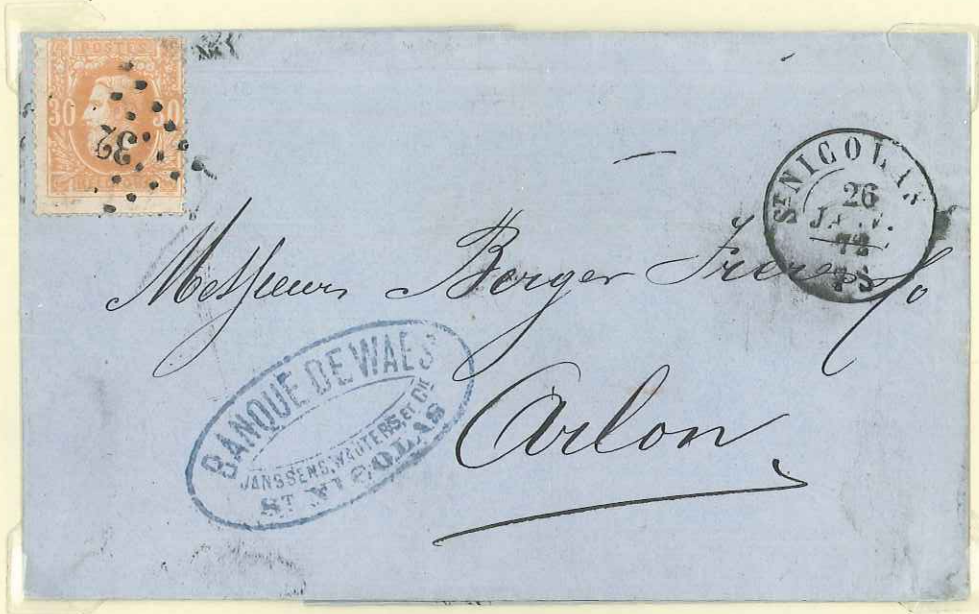 POSTES
30 30
32
ST NICOLAS
26
JANV.
72
Messieurs Berger Frères
Arlon
BANQUE DE WAES
JANSSENS, WAUTERS, et Cie
ST NICOLAS